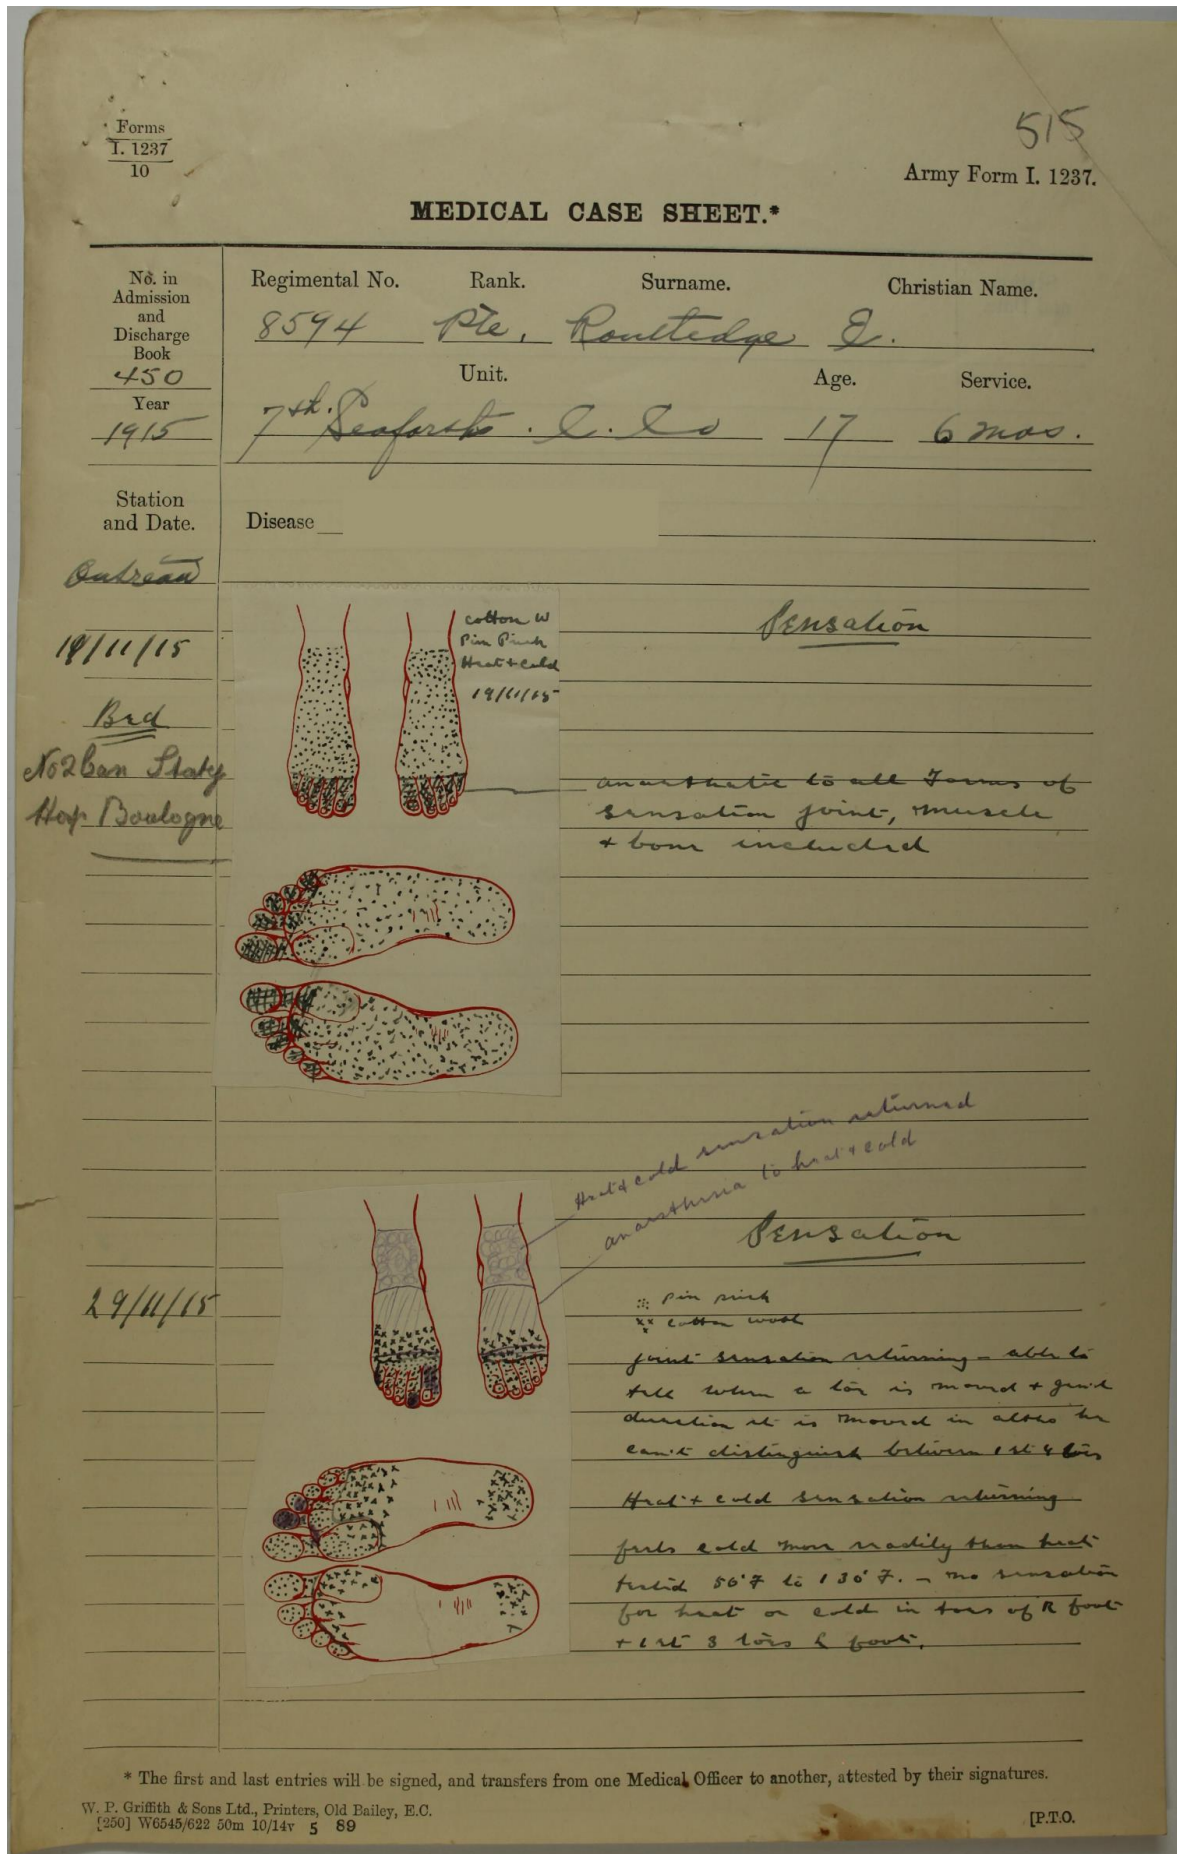 515
Forms
I. 1237
10
Army Form I. 1237.
MEDICAL CASE SHEET.*
No. in
Admission
and
Discharge
Book
450
Year
1915
Regimental No. Rank. Surname. Christian Name.
8594 Pte. Routledge E.
Unit. Age. Service.
7th. Seaforths. C. Co 17 6 mos.
Station
and Date.
Disease
Outreau
19/11/15
Bed
No 2 Can Staty
Hosp Boulogne
cotton W
Pin Prick
Heat & cold
19/11/15
Sensation
anaesthetic to all forms of
sensation joint, muscle
+ bone included
Heat & cold sensation returned
anaesthesia to heat & cold
Sensation
29/11/15
pin prick
xx cotton wool
joint sensation returning – able to
tell when a toe is moved &
direction it is moved in altho he
can't distinguish between 1st 4 toes
Heat + cold sensation returning
feels cold more readily than heat
tested 50°F to 130°F. – no sensation
for heat or cold in toes of R foot
+ 1st 3 toes L foot.
* The first and last entries will be signed, and transfers from one Medical Officer to another, attested by their signatures.
W. P. Griffith & Sons Ltd., Printers, Old Bailey, E.C.
[250] W6545/622 50m 10/14v 5 89
[P.T.O.